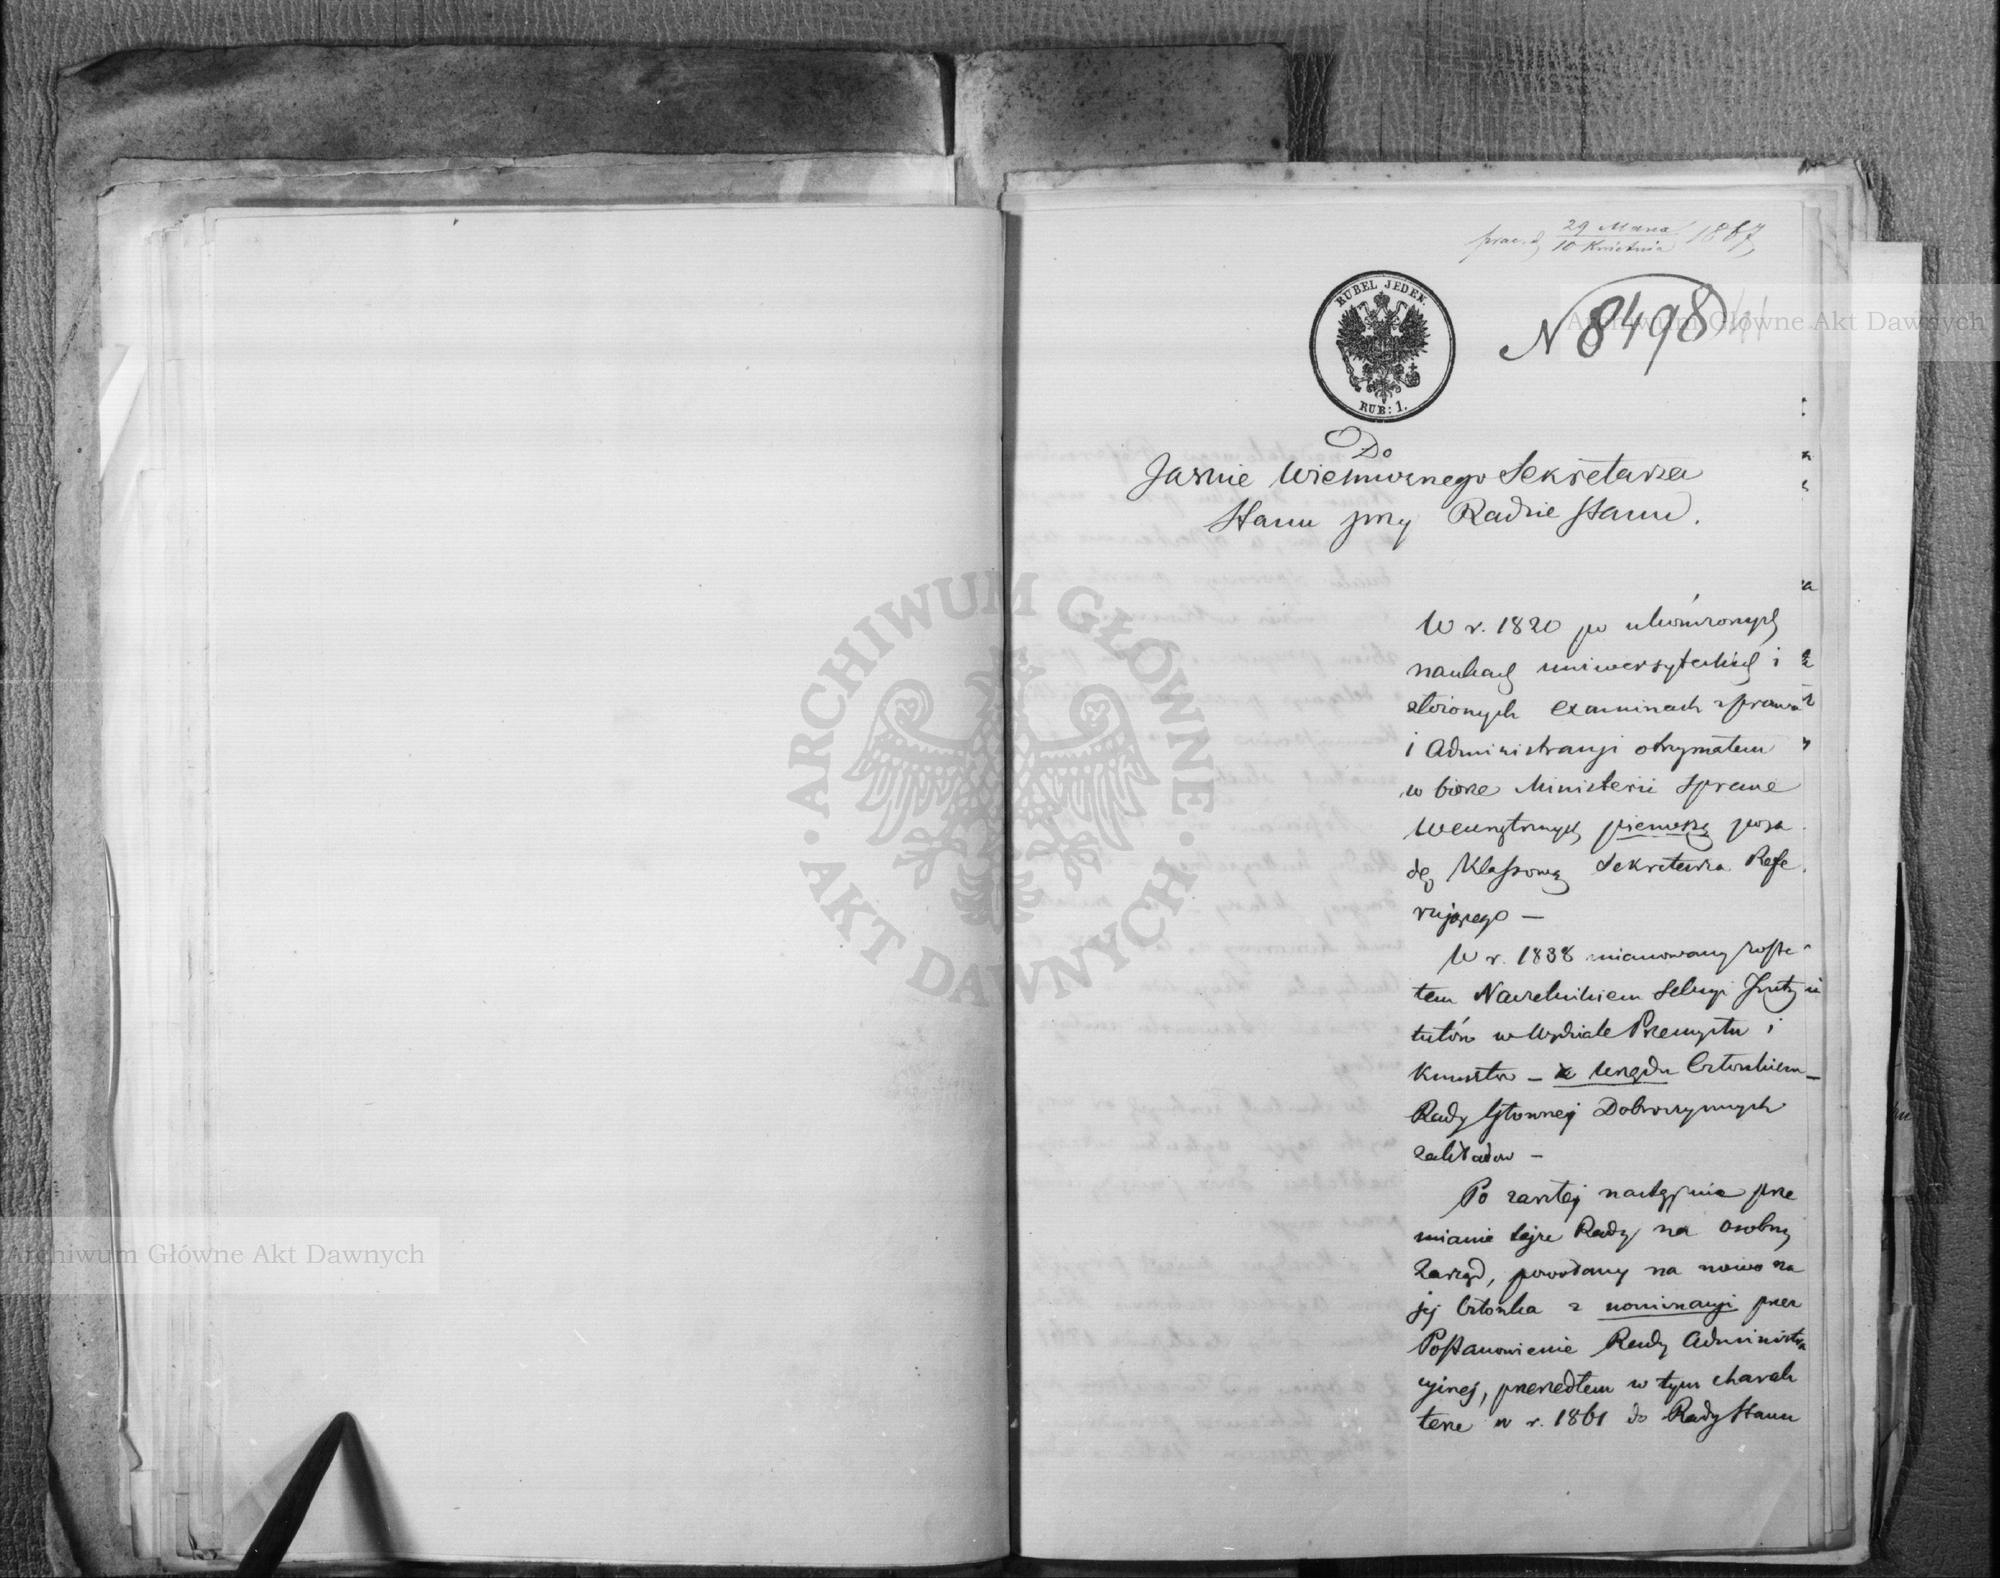 29 Marca
10 Kwietnia 1867
RUBEL JEDEN.
RUB: 1.
N 8498
Do
Jaśnie Wielmożnego Sekretarza
Stanu przy Radzie Stanu.
W r. 1820 po ukończonych
naukach uniwersyteckich i
złożonych examinach z prawa
i Administracji otrzymałem
w biórze Ministerii Spraw
Wewnętrznych pierwszą posa
dę Klassową Sekretarza Refe
rującego —
W r. 1838 mianowany zosta
łem Naczelnikiem Sekcyi Insty
tutów w Wydziale Przemysłu i
Kunsztów — z Urzędu Członkiem
Rady Głównej Dobroczynnych
zakładów —
Po zaszłej następnie prze
mianie tejże Rady na osobny
Zarząd, powołany na nowo na
jej Członka z nominacyi przez
Postanowienie Rady Administra
cyjnej, przeszedłem w tym charak
terze w r. 1861 do Rady Stanu
ARCHIWUM GŁÓWNE
AKT DAWNYCH
Archiwum Główne Akt Dawnych
Archiwum Główne Akt Dawnych